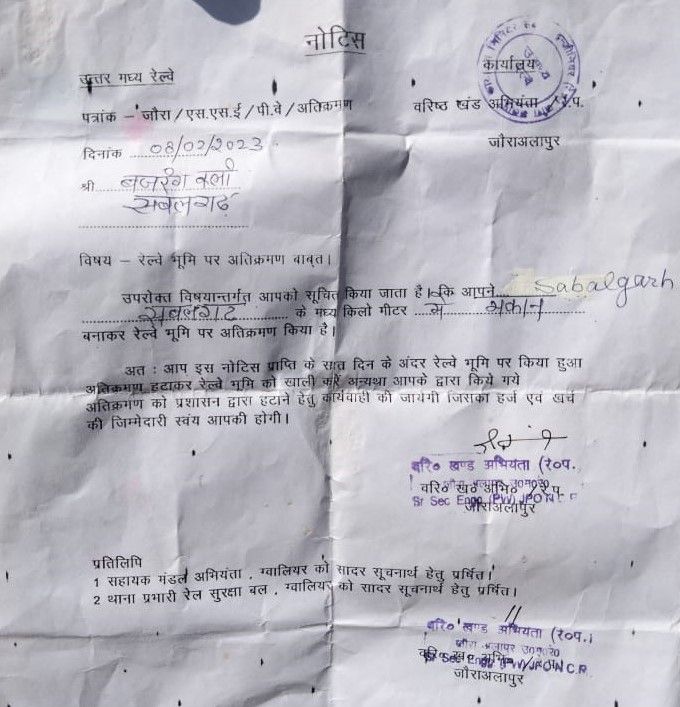 नोटिस
उत्तर मध्य रेल्वे
कार्यालय
पत्रांक - जौरा/एस.एस.ई/पी.वे/अतिक्रमण
वरिष्ठ खंड अभियंता /रे.प.
जौराअलापुर
दिनांक 08/02/2023
श्री बजरंग वली
सबलगढ़
विषय – रेल्वे भूमि पर अतिक्रमण बाबत।
उपरोक्त विषयान्तर्गत आपको सूचित किया जाता है। कि आपने Sabalgarh
सबलगढ के मध्य किलो मीटर में मकान
बनाकर रेल्वे भूमि पर अतिक्रमण किया है।
अत : आप इस नोटिस प्राप्ति के सात दिन के अंदर रेल्वे भूमि पर किया हुआ
अतिक्रमण हटाकर रेल्वे भूमि को खाली करें अन्यथा आपके द्वारा किये गये
अतिक्रमण को प्रशासन द्वारा हटाने हेतु कार्यवाही की जायेगी जिसका हर्ज एवं खर्च
की जिम्मेदारी स्वंय आपकी होगी।
वरि० खण्ड अभियंता (रे०प.
वरि० ख० अभि० /रे.प.
जौरा अलापुर उ०म०रे०
Sr Sec Engg (PW) JPO N C R
जौराअलापुर
प्रतिलिपि
1 सहायक मंडल अभियंता , ग्वालियर को सादर सूचनार्थ हेतु प्रर्षित।
2 थाना प्रभारी रेल सुरक्षा बल , ग्वालियर को सादर सूचनार्थ हेतु प्रर्षित।
वरि० खण्ड अभियंता (रे०प.)
जौरा अलापुर उ०म०रे०
वरि० ख० अभि०
Sr Sec Engg (PW) JPO N C.R.
जौराअलापुर